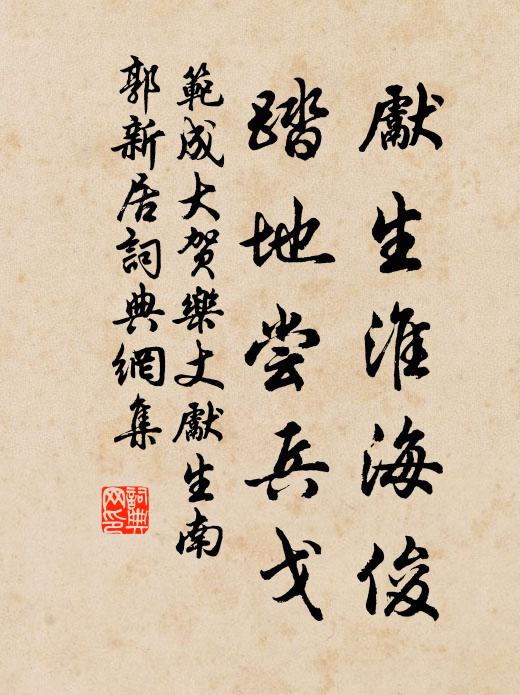 獻生淮海俊
踏地尝兵戈
範成大賀樂丈獻生南
郭新居詞典網集
詞典
网印